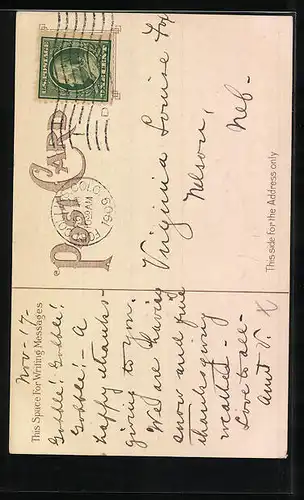 This Space For Writing Messages
Nov- 17-
Gobble! Gobble!
Gobble! - A
happy thanks-
giving to you.
We are having
snow and fine
thanksgiving
weather -
Love to all -
Aunt V.
POST CARD
U.S. POSTAGE
COLO.
AM
1909
Virginia Louise Fox
Nelson,
Neb-
This side for the Address only